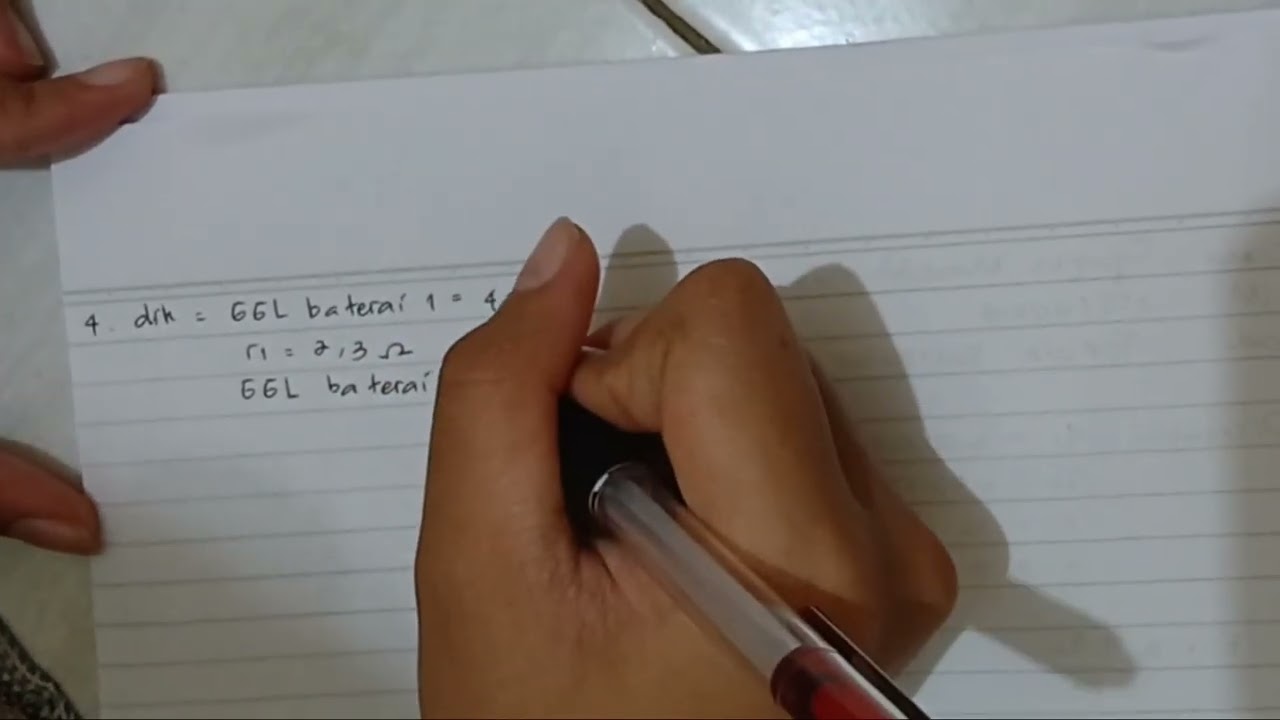 4. dik = GGL baterai 1 = 4
r1 = 2,3 Ω
GGL baterai